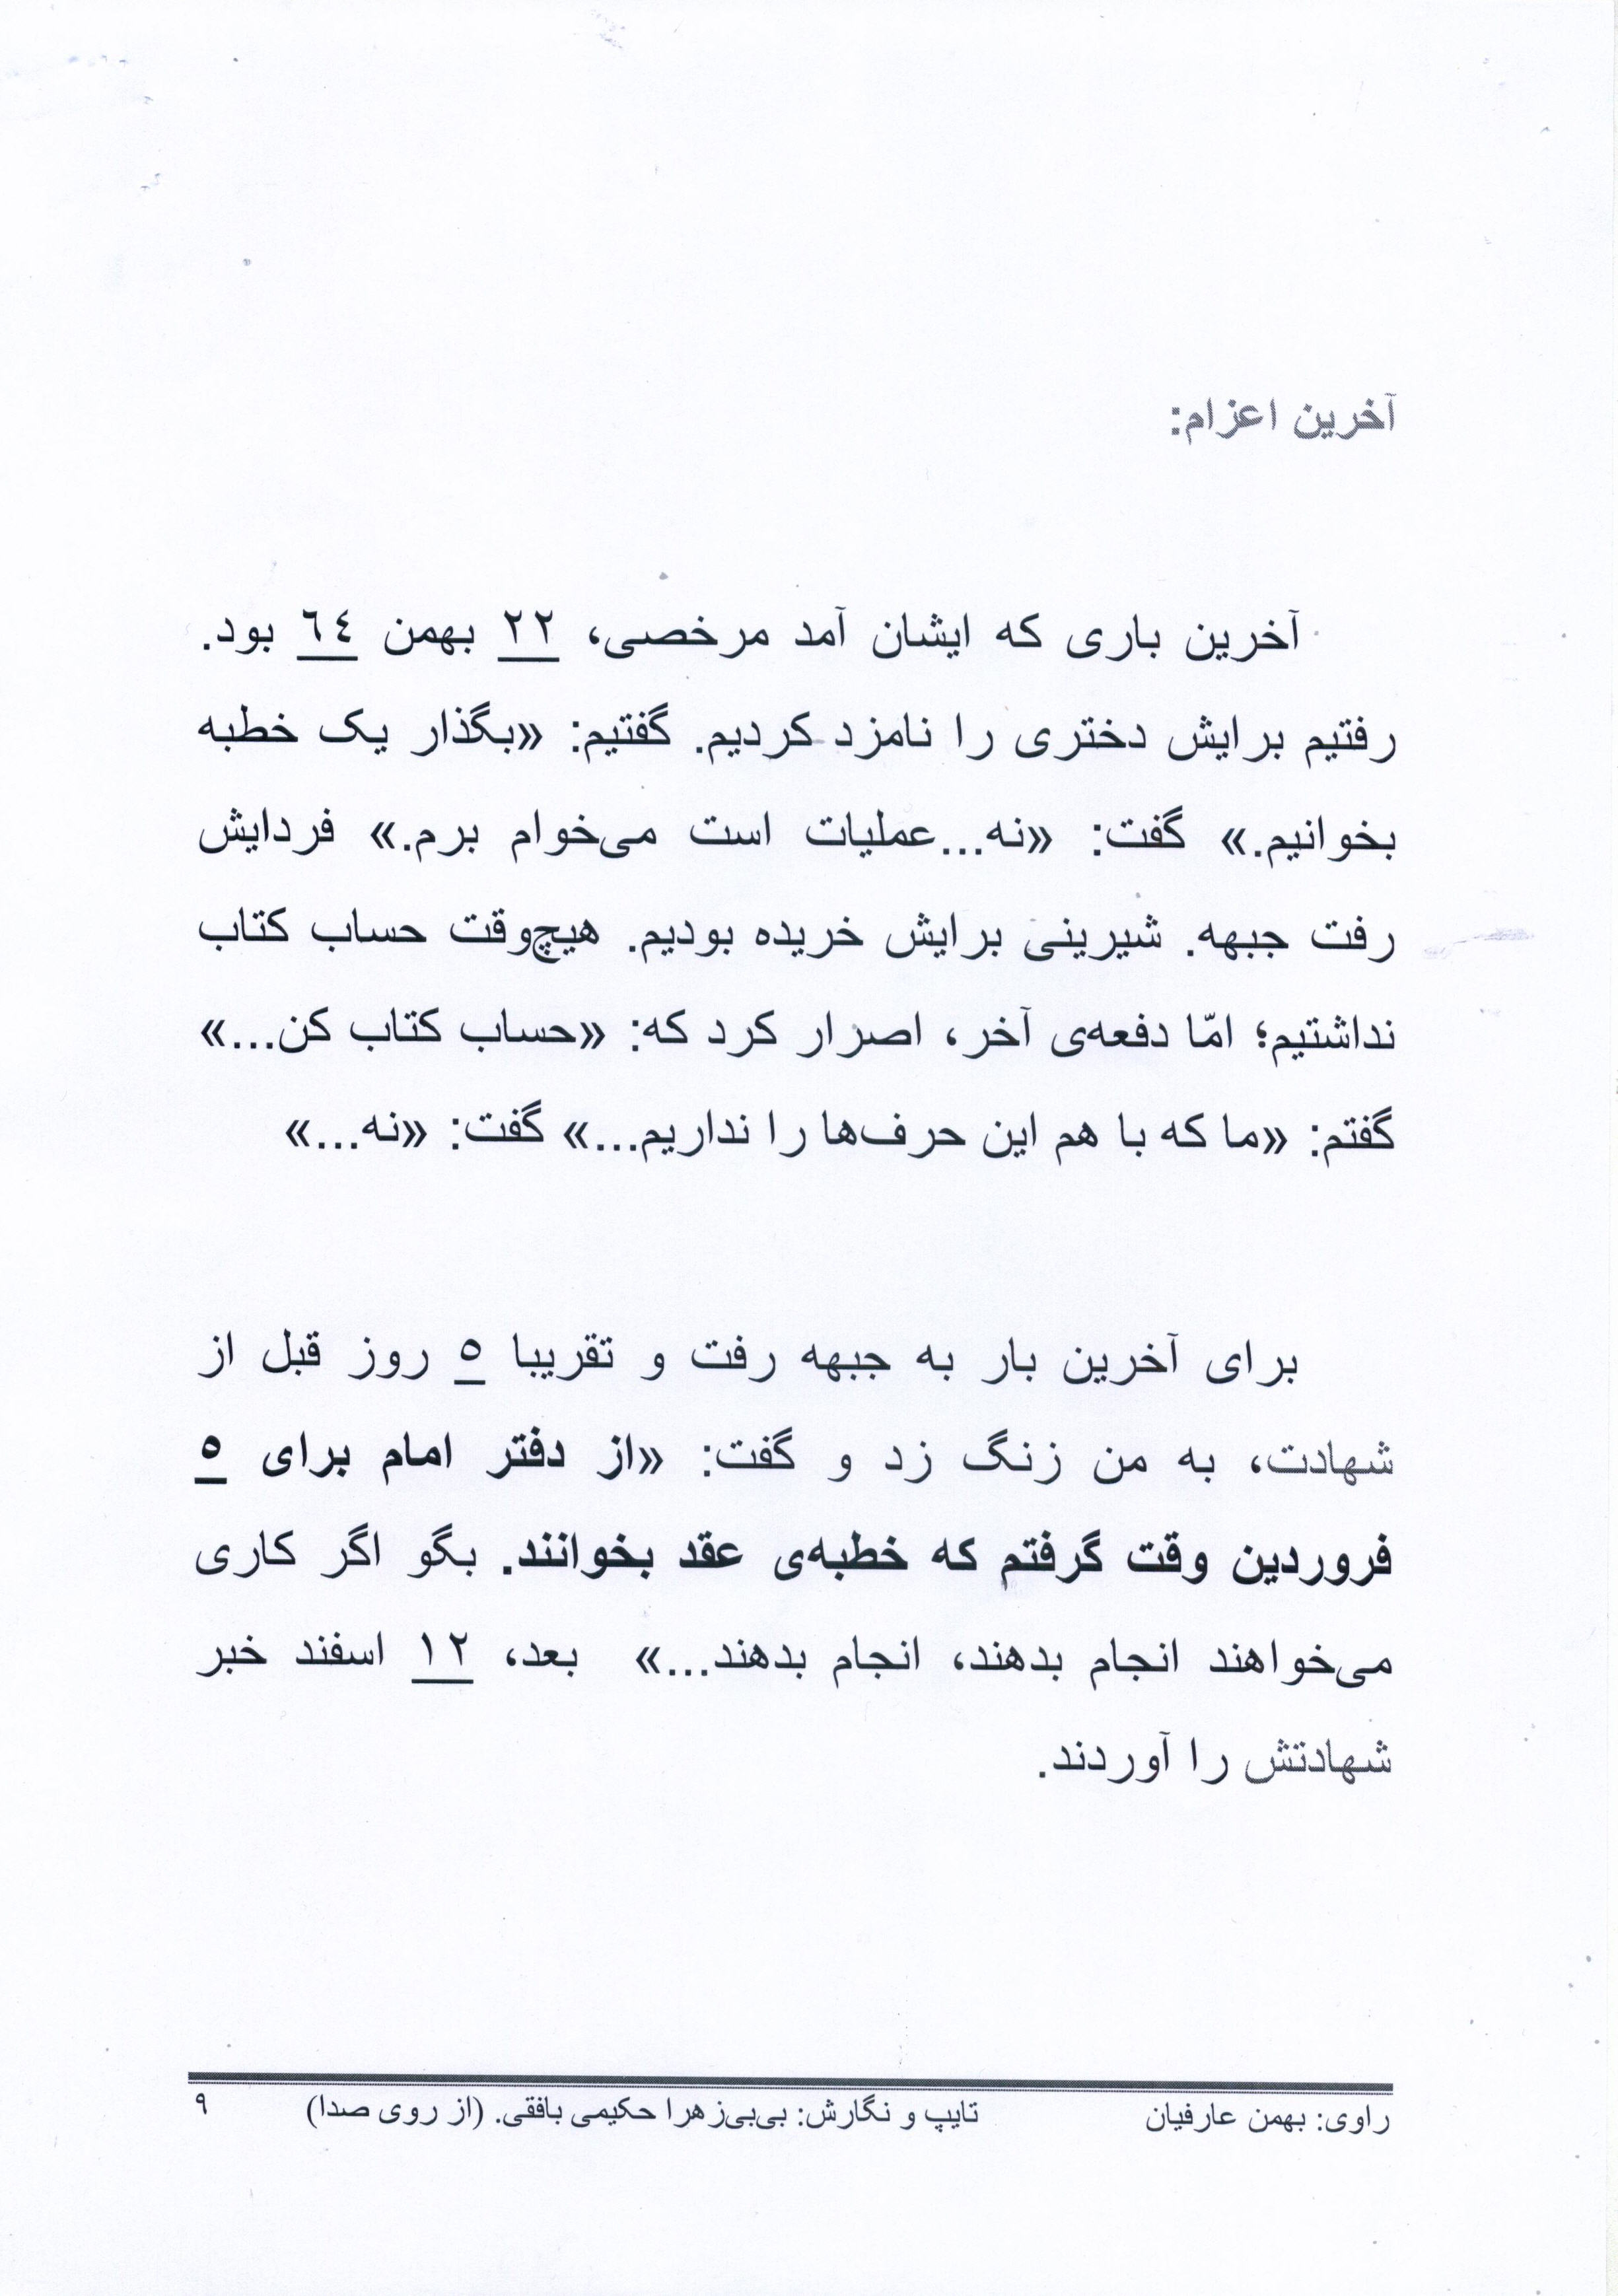 آخرین اعزام:
آخرین باری که ایشان آمد مرخصی، ٢٢ بهمن ٦٤ بود.
رفتیم برایش دختری را نامزد کردیم. گفتیم: «بگذار یک خطبه
بخوانیم.» گفت: «نه...عملیات است می‌خوام برم.» فردایش
رفت جبهه. شیرینی برایش خریده بودیم. هیچ‌وقت حساب کتاب
نداشتیم؛ امّا دفعه‌ی آخر، اصرار کرد که: «حساب کتاب کن...»
گفتم: «ما که با هم این حرف‌ها را نداریم...» گفت: «نه...»
برای آخرین بار به جبهه رفت و تقریبا ٥ روز قبل از
شهادت، به من زنگ زد و گفت: «از دفتر امام برای ٥
فروردین وقت گرفتم که خطبه‌ی عقد بخوانند. بگو اگر کاری
می‌خواهند انجام بدهند، انجام بدهند...» بعد، ١٢ اسفند خبر
شهادتش را آوردند.
راوی: بهمن عارفیان تایپ و نگارش: بی‌بی‌زهرا حکیمی بافقی. (از روی صدا) ٩